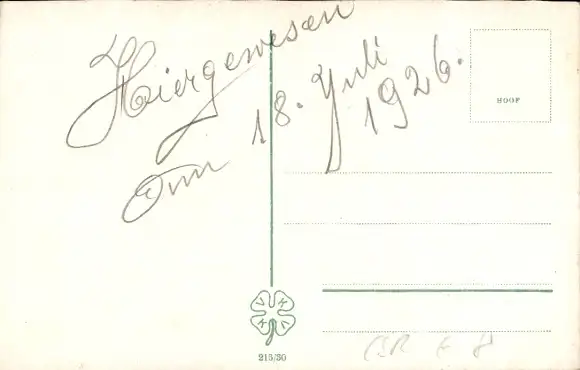 Hiergewesen
Om 18. Juli
1926.
HOOF
215/30